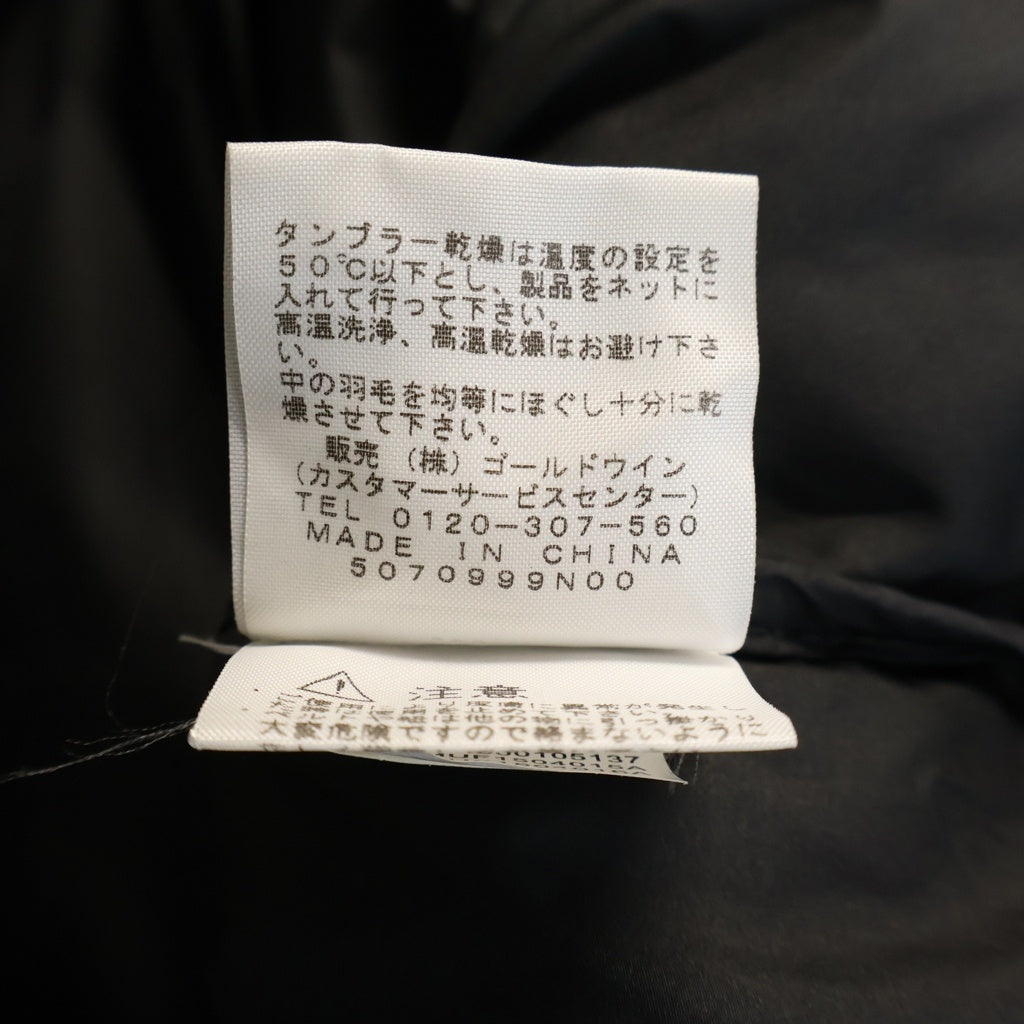 タンブラー乾燥は温度の設定を
50℃以下とし、製品をネットに
入れて行って下さい。
高温洗浄、高温乾燥はお避け下さ
い。
中の羽毛を均等にほぐし十分に乾
燥させて下さい。
販売 (株) ゴールドウイン
(カスタマーサービスセンター)
TEL 0120-307-560
MADE IN CHINA
5070999N00
注意
大変危険ですので絶